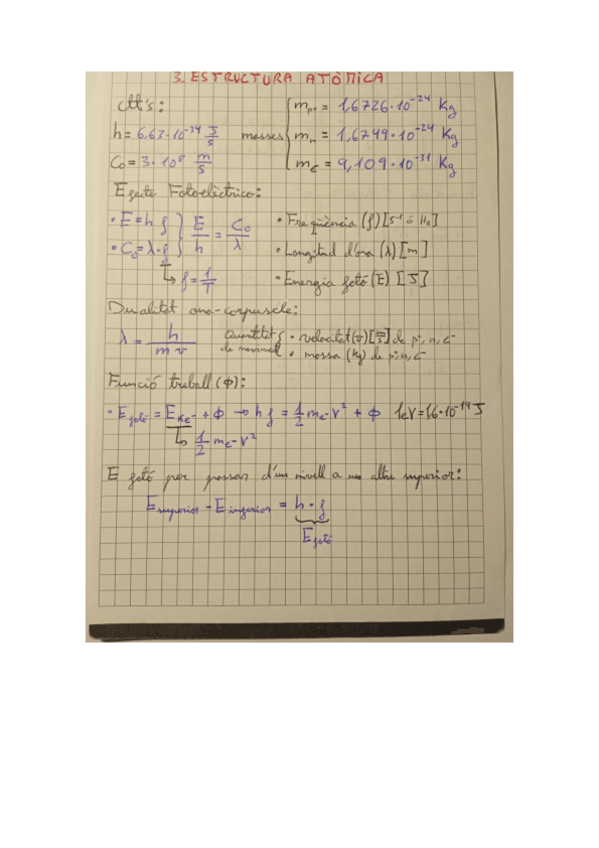 3. ESTRUCTURA ATÒMICA
ctt's:
h = 6.63·10⁻³⁴ J/s
C₀ = 3·10⁸ m/s
masses { mₚ⁺ = 1,6726·10⁻²⁴ Kg
mₙ = 1,6749·10⁻²⁴ Kg
mₑ⁻ = 9,109·10⁻³¹ Kg
Efecte Fotoelèctric:
• E = h f } E/h = C₀/λ
• C₀ = λ·f
↳ f = 1/T
• Freqüència (f) [s⁻¹ ó Hz]
• Longitud d'ona (λ) [m]
• Energia fotó (E) [J]
Dualitat ona-corpuscle:
λ = h / m v
Quantitat de moviment { • velocitat (v) [m/s] de p⁺, n, e⁻
• massa (kg) de p⁺, n, e⁻
Funció treball (Φ):
• E fotó = E Ke⁻ + Φ → h f = 1/2 me⁻ v² + Φ 1eV = 1,6·10⁻¹⁹ J
↳ 1/2 me⁻ v²
E fotó per passar d'un nivell a un altre superior:
E superior - E inferior = h · f
E fotó